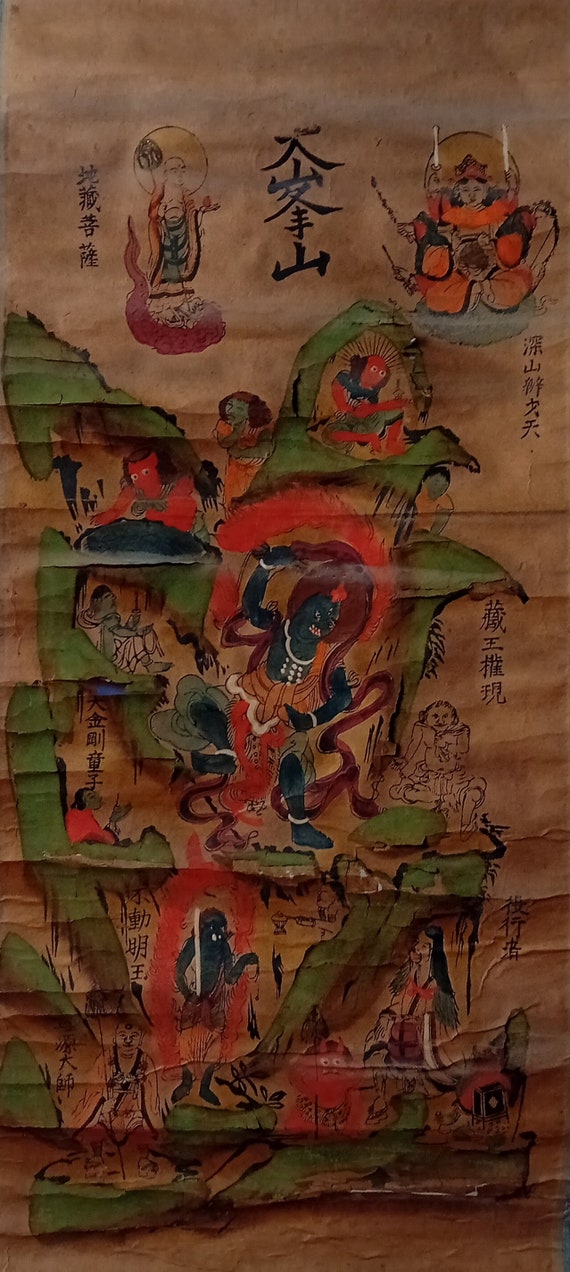 大峯山
深山辧才天
地藏菩薩
藏王權現
大金剛童子
役行者
不動明王
源大師